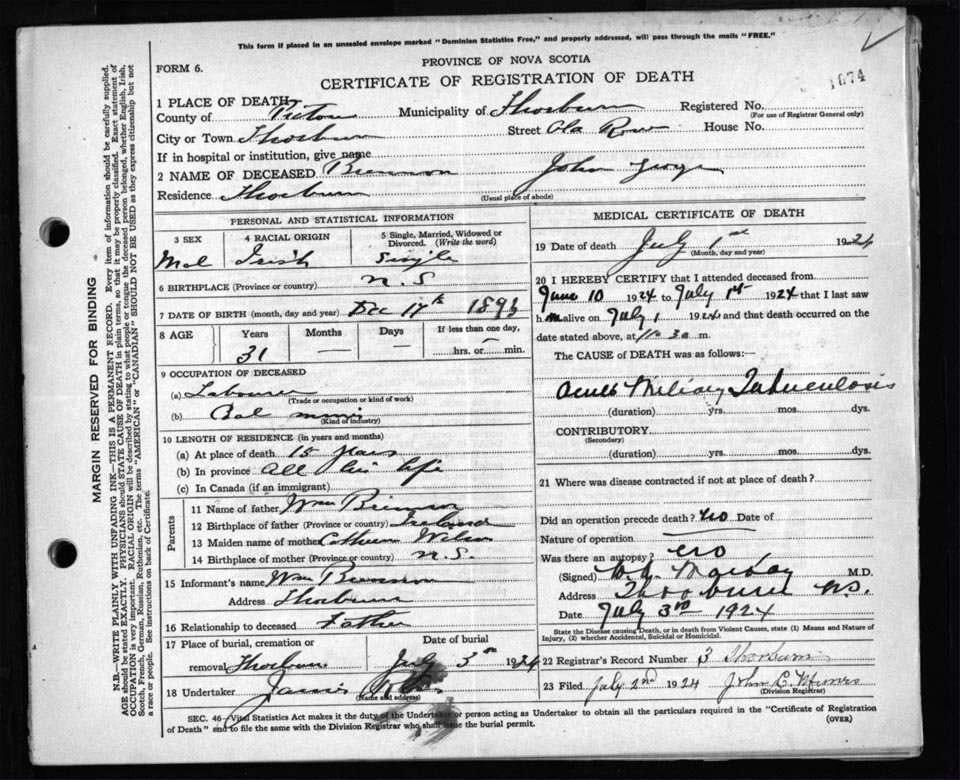 This form if placed in an unsealed envelope marked "Dominion Statistics Free," and properly addressed, will pass through the mails "FREE."
FORM 6.
PROVINCE OF NOVA SCOTIA
CERTIFICATE OF REGISTRATION OF DEATH
1674
MARGIN RESERVED FOR BINDING
N.B.—WRITE PLAINLY WITH UNFADING INK—THIS IS A PERMANENT RECORD. Every item of information should be carefully supplied.
AGE should be stated EXACTLY. PHYSICIANS should STATE CAUSE OF DEATH in plain terms, so that it may be properly classified. Exact statement of
OCCUPATION is very important. RACIAL ORIGIN will be described by stating to what people or tongue the deceased person belonged, whether English, Irish,
Scotch, French, German, Russian, Ruthenian, etc. The terms "AMERICAN" or "CANADIAN" SHOULD NOT BE USED as they express citizenship but not
a race or people. See instructions on back of Certificate.
1 PLACE OF DEATH
County of Pictou Municipality of Thorburn Registered No.
(For use of Registrar General only)
City or Town Thorburn Street Old Row House No.
If in hospital or institution, give name
2 NAME OF DECEASED John George
Residence Thorburn
(Usual place of abode)
PERSONAL AND STATISTICAL INFORMATION
3 SEX 4 RACIAL ORIGIN 5 Single, Married, Widowed or Divorced. (Write the word)
Mal Irish Single
6 BIRTHPLACE (Province or country) N.S
7 DATE OF BIRTH (month, day and year) Dec 11th 1893
8 AGE Years Months Days If less than one day,
31 — — — hrs. or min.
9 OCCUPATION OF DECEASED
(a) Labourer
(Trade or occupation or kind of work)
(b)
(Kind of industry)
10 LENGTH OF RESIDENCE (in years and months)
(a) At place of death 15 years
(b) In province all his life
(c) In Canada (if an immigrant)
Parents
11 Name of father Wm
12 Birthplace of father (Province or country) Ireland
13 Maiden name of mother Catherine Wilson
14 Birthplace of mother (Province or country) N.S.
15 Informant's name Wm
Address Thorburn
16 Relationship to deceased Father
17 Place of burial, cremation or removal Thorburn Date of burial July 3rd 1924
18 Undertaker James
(Name and address)
MEDICAL CERTIFICATE OF DEATH
19 Date of death July 1st 1924
(Month, day and year)
20 I HEREBY CERTIFY that I attended deceased from
June 10 1924 to July 1st 1924 that I last saw
h m alive on July 1 1924 and that death occurred on the
date stated above, at 11 30 a m.
The CAUSE of DEATH was as follows:—
Acute Miliary Tuberculosis
(duration) yrs. mos. dys.
CONTRIBUTORY
(Secondary)
(duration) yrs. mos. dys.
21 Where was disease contracted if not at place of death?
Did an operation precede death? no Date of
Nature of operation —
Was there an autopsy? no
(Signed) M.D.
Address Thorburn N.S.
Date July 3rd 1924
State the Disease causing Death, or in death from Violent Causes, state (1) Means and Nature of
Injury, (2) whether Accidental, Suicidal or Homicidal.
22 Registrar's Record Number 3 Thorburn
23 Filed July 2nd 1924 John C.
(Division Registrar)
SEC. 46—Vital Statistics Act makes it the duty of the Undertaker or person acting as Undertaker to obtain all the particulars required in the "Certificate of Registration
of Death" and to file the same with the Division Registrar who shall issue the burial permit.
(OVER)